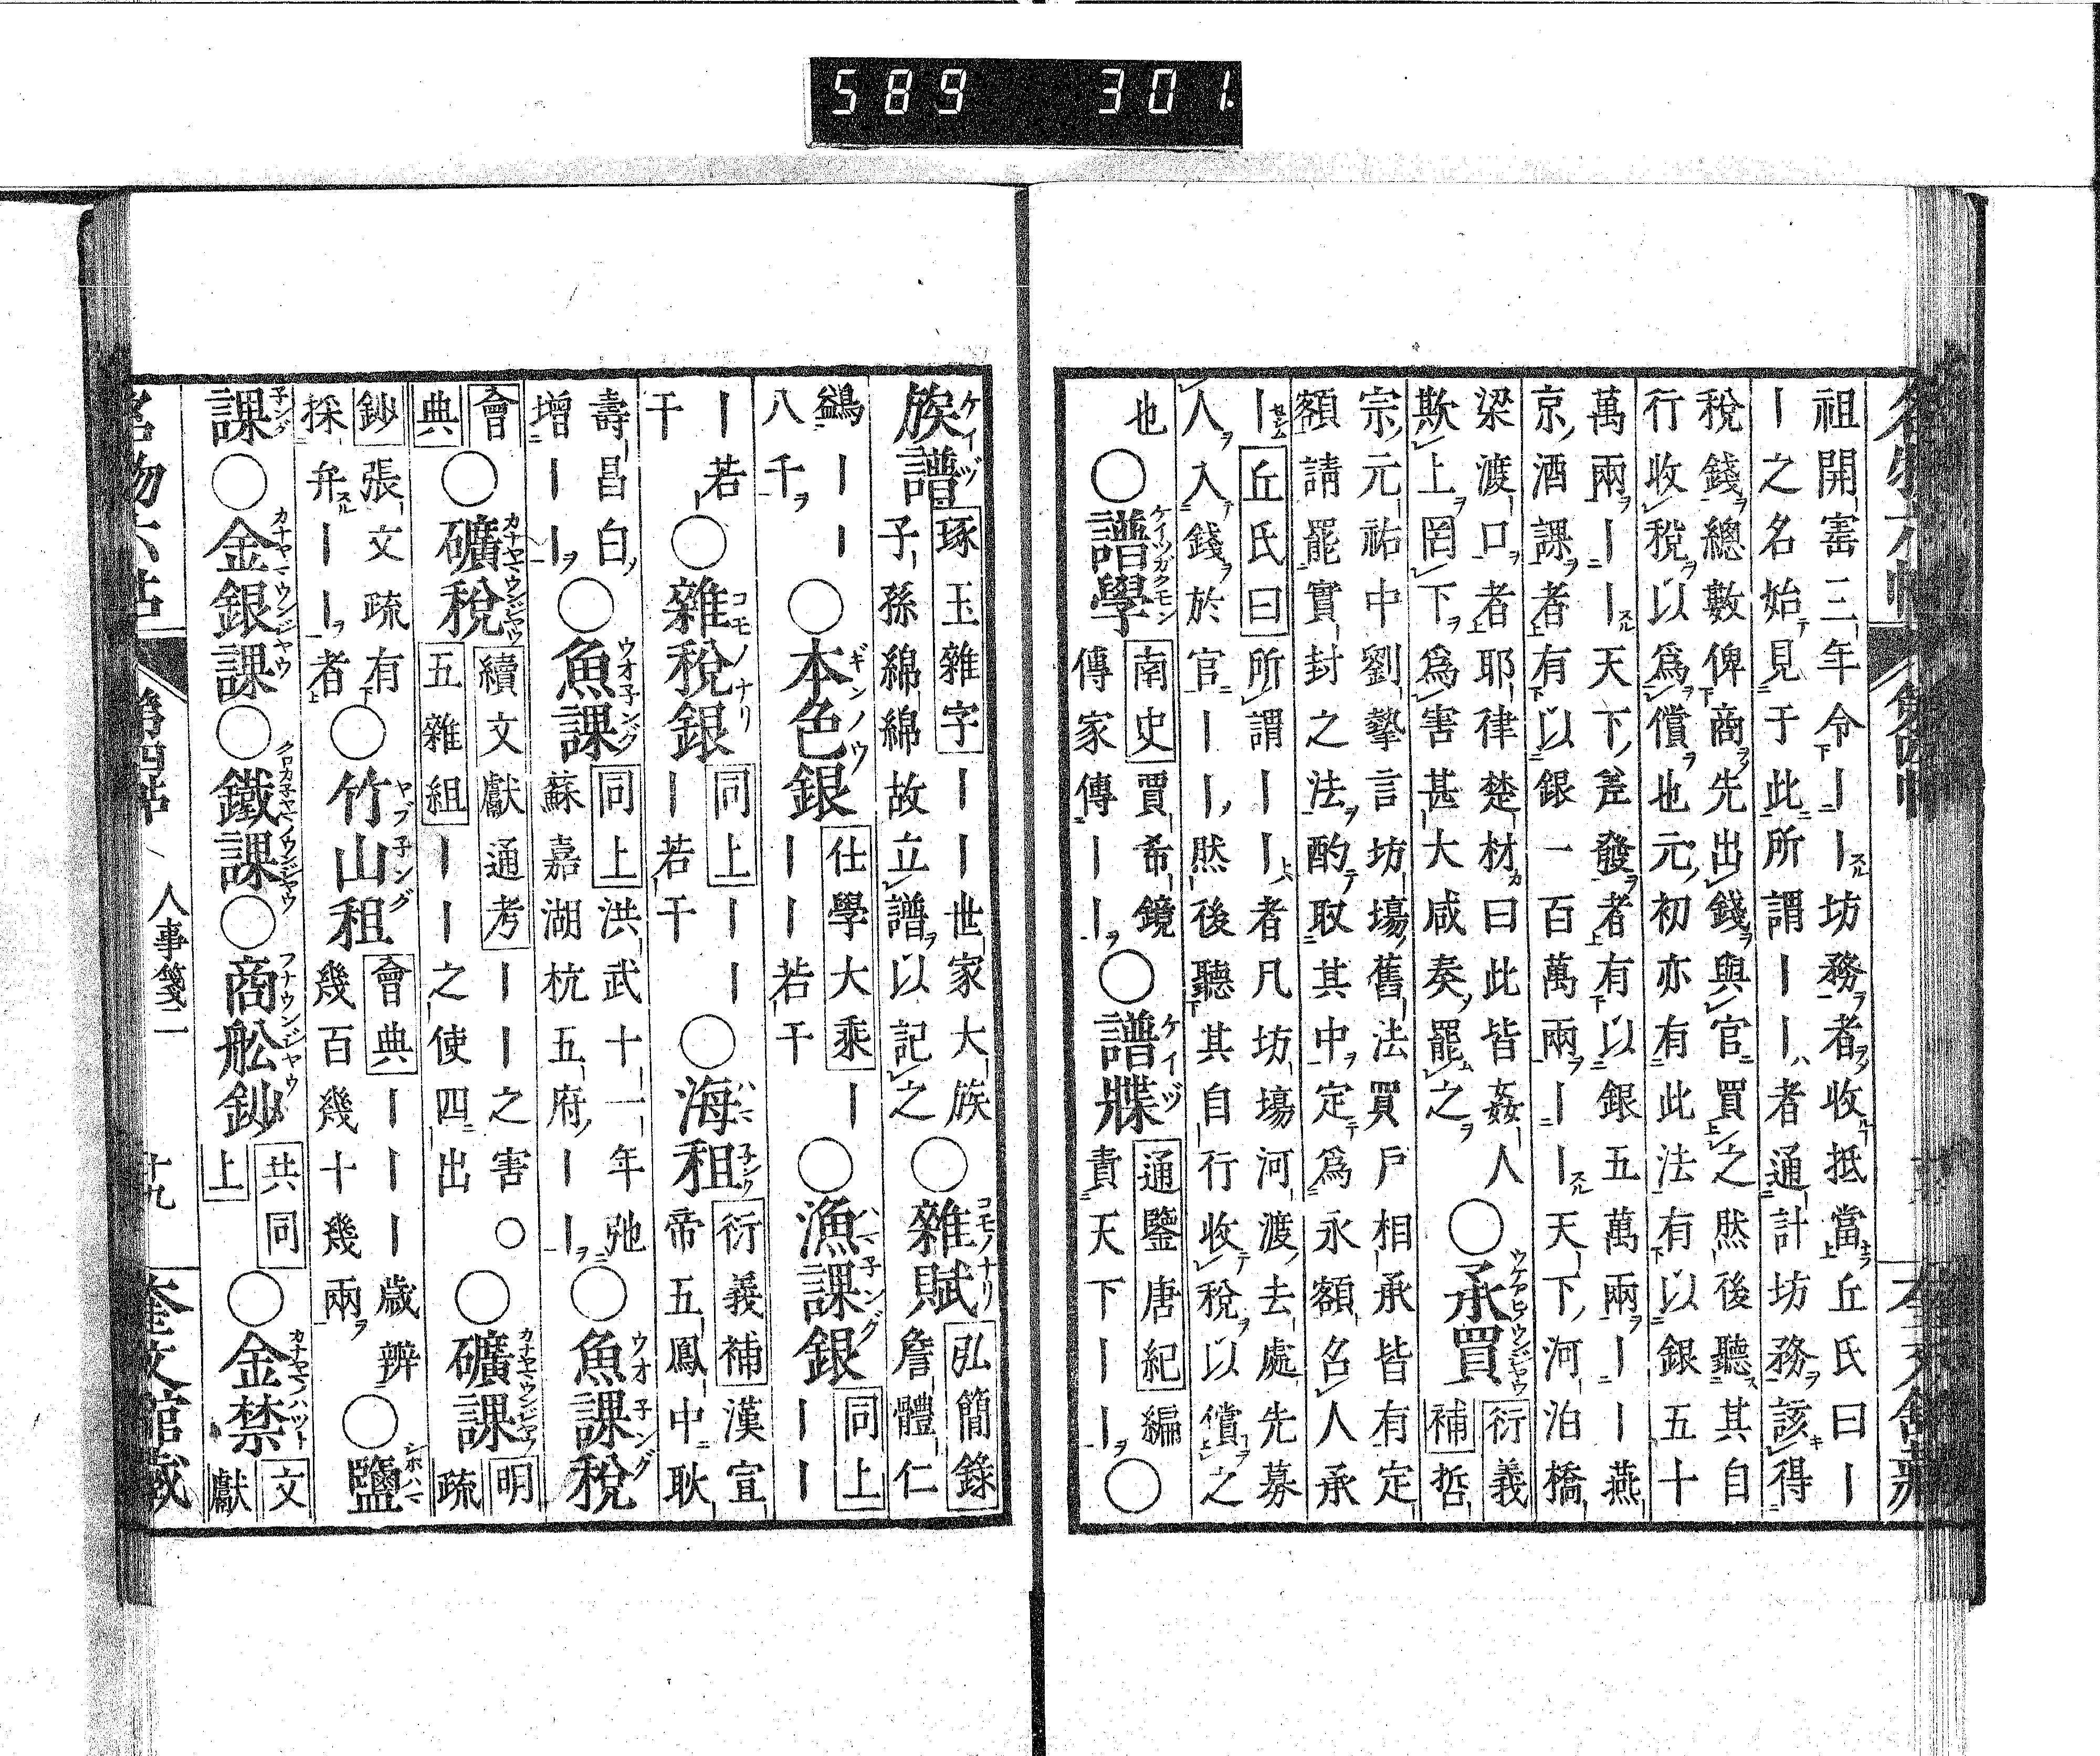 589 301.
祖開寶三年令〡〡坊務者收抵當丘氏曰〡
〡之名始見于此所謂〡〡者通計坊務該得
稅錢總數俾商先出錢與官買之然後聽其自
行收稅以爲償也元初亦有此法有以銀五十
萬兩〡〡天下差發者有以銀五萬兩〡〡燕
京酒課者有以銀一百萬兩〡〡天下河泊橋
梁渡口者耶律楚材曰此皆姦人
欺上罔下爲害甚大咸奏罷之
○承買
衍義
補哲
宗元祐中劉摯言坊場舊法買戶相承皆有定
額請罷實封之法酌取其中定爲永額召人承
〡丘氏曰所謂〡〡者凡坊場河渡去處先募
人入錢於官〡〡然後聽其自行收稅以償之
也
○譜學
南史賈希鏡
傳家傳〡〡
○譜牒
通鑒唐紀編
責天下〡〡
○
族譜
琢玉雜字〡〡世家大族
子孫綿綿故立譜以記之
○雜賦
弘簡錄
詹體仁
鷁〡〡
八千
○本色銀
仕學大乘〡
〡〡若干
○漁課銀
同上
〡〡
〡若
干
○雜稅銀
同上〡〡
〡若干
○海租
衍義補漢宣
帝五鳳中耿
壽昌白
增〡〡
○魚課
同上洪武十一年弛
蘇嘉湖杭五府〡〡
○魚課稅
會
典
○礦稅
續文獻通考〡〡之害○
五雜組〡〡之使四出
○礦課
明
疏
鈔張文疏有
採弁〡〡者
○竹山租
會典〡〡〡歲辦
幾百幾十幾兩
○鹽
課
○金銀課
○鐵課
○商舩鈔
共同
上
○金禁
文
獻
名物六帖
第四帖
人事箋二
十九
奎文館藏